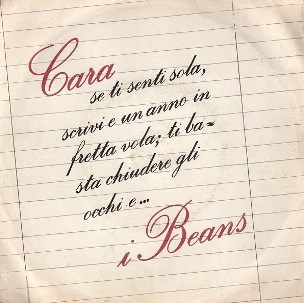 Cara
se ti senti sola,
scrivi e un anno in
fretta vola; ti ba=
sta chiudere gli
occhi e...
i Beans